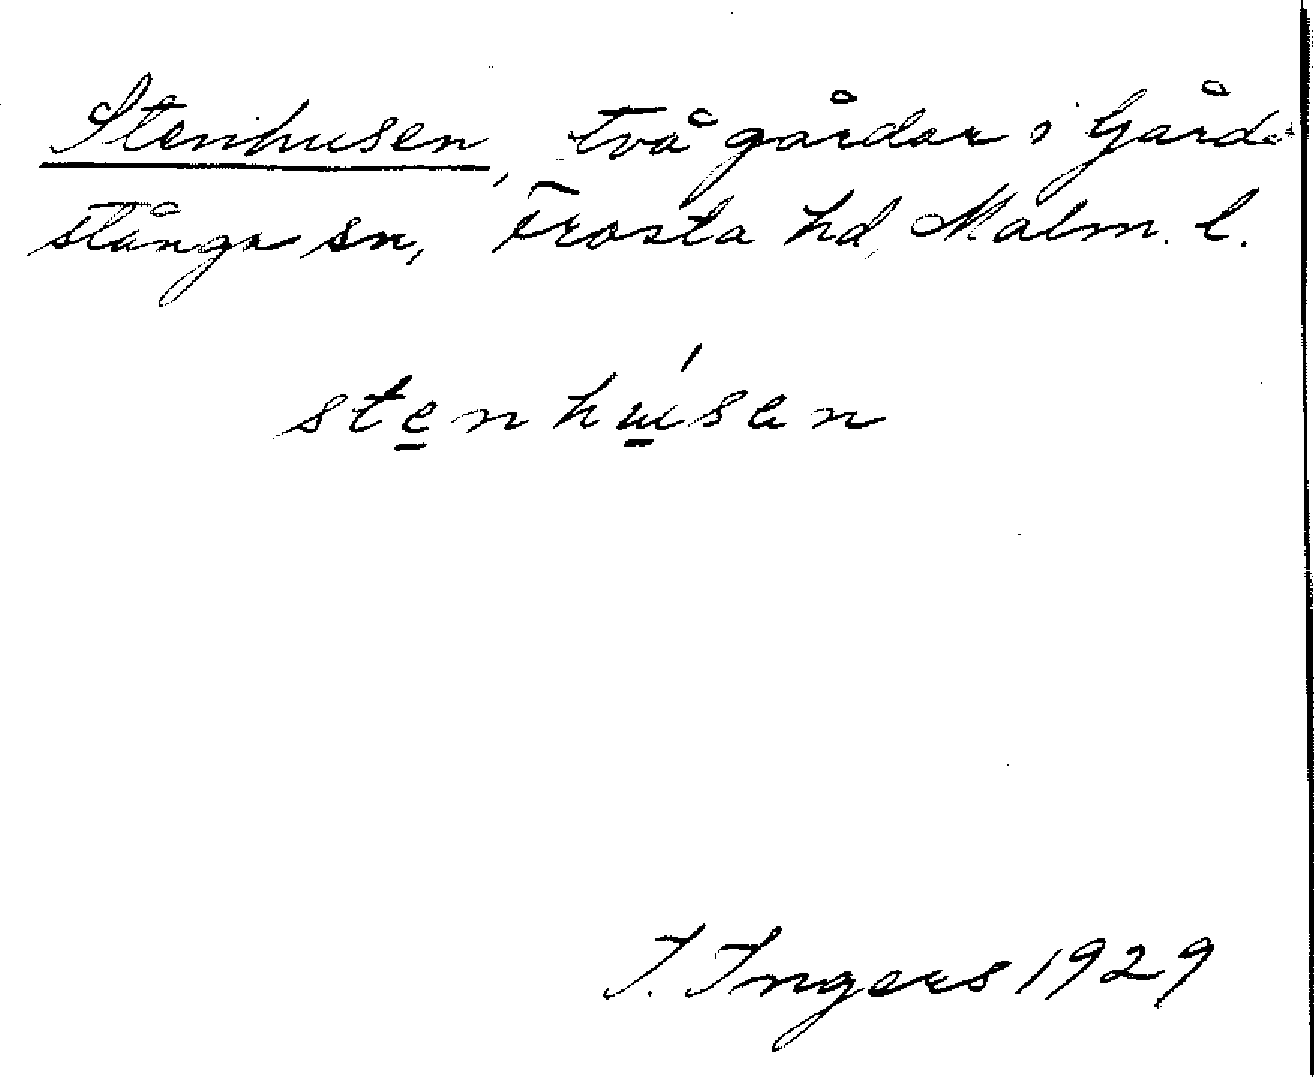 Stenhusen, två gårdar i Gård-
stånga sn, Frosta hd, Malm. l.
stenhúsen
I. Ingers 1929